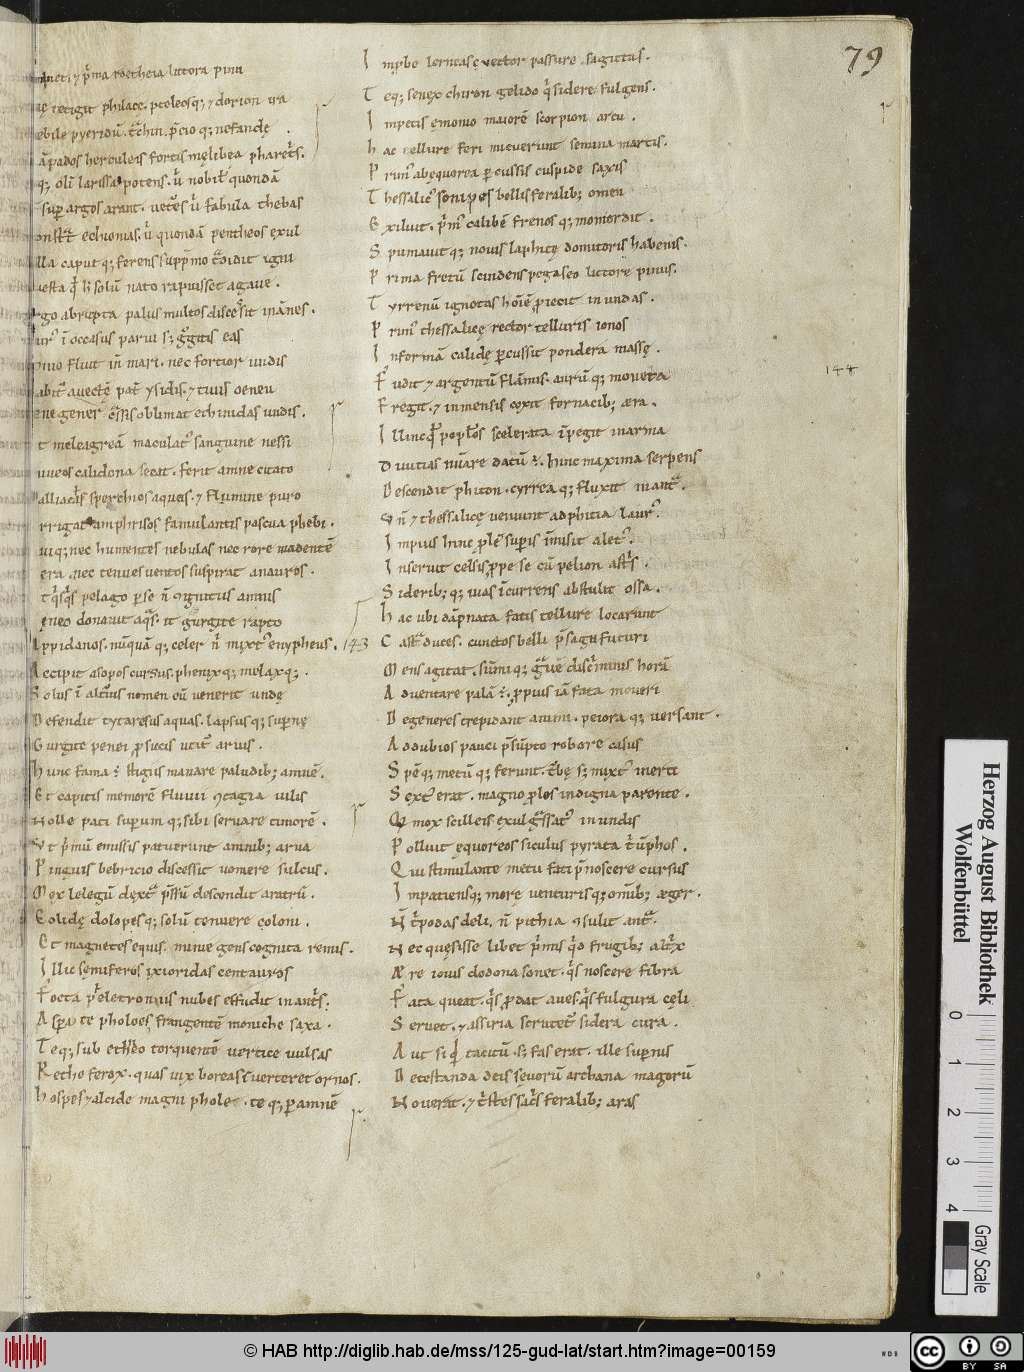 79
&net; & p̄ma roetheia littora pinu
ę tetigit philace. pteleosq; & dorion ira
ebile pyeridū. t̄chin. p̄cio q; nefandę.
āpados herculeis fortis męlibea pharet̄s.
q; oli larissa potens. ū nobil̄ quondā
sup argos arant. uet̄es ū fabula thebas
echionias. ū quondā pentheos exul
lla caput q; ferens supp̄mo t̄didit igni
uesta q̄ h̄ solū nato rapuisset agaue.
rgo abrupta palus multos discessit in ānes.
ur̄ ī occasus parui s; ḡgitis eas
onio fluit in mari. nec fortior undis
abit̄ auectę pat̄ ysidis. & tuus oeneu
ene gener c̄ssis oblimat echinidas undis.
t meleagreā maculat̄ sanguine nessi
uueos calidona secat. ferit amne citato
alliacis sperchios aquas. & flumine puro
rrigat amphrisos famulantis pascua phebi.
uiq; nec humentes nebulas nec rore madentē
era. nec tenues uentos suspirat anauros.
t q̄sq̄s pelago per se n̄ ꝯgnitus amnis
eneo donauit aq̄s. it gurgite rapto
Appidanos. nūquā q; celer n̄ mixt̄ enypheus. 143
Accipit asopos cursus. phenyx q; melax q;.
Solus ī alt̄ius nomen cū uenerit undę
Defendit tytaresus aquas. lapsus q; supnę
Gurgite penei ꝓ siccis utit̄ aruis.
Hunc fama ē stigiis manare paludib; amnē.
Et capitis memorē fluuii ꝯtagia uilis
Nolle pati superum q; sibi seruare timorē.
Vt p̄mū emissis patuerunt amnib; arua
Pinguis bebricio discessit uomere sulcus.
Mox lelegū dext̄ p̄ssū descendit aratrū.
Eolidę dolopes q; solū tenuere coloni.
Et magnetes equis. minie gens cognita remis.
Illic sęmiferos ixioridas centauros
Fęta peletroniis nubes effudit in ant̄s;
Aspa te pholoes frangentē moniche saxa.
Te q; sub ethęo torquentē uertice uulsas
Retho ferox. quas uix boreas īuerteret ornos.
Hospes & alcide magni phole. te q; p amnē
Inpbe lerneas ę uector passure sagittas.
Te q; senex chiron gelido q̄ sidere fulgens.
Inpetis ęmonio maiorē scorpion arcu.
Hac tellure feri micuerunt semina martis.
Primꝰ ab ęquorea p cussis cuspide saxis
Thessalicꝰ sonipes bellis feralib; omen
Exiluit. p̄mꝰ calibē frenos q; momordit.
Spumauit q; nouis laphitę domitoris habenis.
Prima fretū scindens pegaseo littore pinus.
Tyrrenū ignotas hoīē ꝓiecit in undas.
Primꝰ thessalicę rector telluris ionos
Informā calidę pcussit pondera massę.
Fudit & argentū flāmis. aurū q; moneta 144
Fregit. & inmensis coxit fornacib; æra.
Illinc q̄ poplos scelerata īpegit in arma
Diuitias nūare datū ē. hinc maxima serpens
Descendit phiton. cyrrea q; fluxit in ant̄.
Vn̄ & thessalicę ueniunt ad phitia laurꝰ.
Impius hinc ꝓlē supis īmisit alet̄.
Inseruit celsis ꝓpe se cū pelion ast̄s.
Siderib; q; uias īcurrens abstulit ossa.
Hac ubi dāpnata fatis tellure locarunt
Cast̄ duces. cunctos belli p̄saga futuri
Mens agitat. sūmi q; ḡuē disc̄minis horā
Aduentare palā ē. ꝓpius iā fata moueri
Degeneres trepidant animi. peiora q; uersant.
Ad dubios pauci p̄sūpto robore casus
Spē q; metū q; ferunt. t̄bę s; mixtꝰ inerti
Sextꝰ erat. magno ꝓles indigna parente.
Q mox scilleis exul ḡssatꝰ in undis
Polluit ęquoreos siculus pyrata t̄ūphos.
Qui stimulante metu fati p̄noscere cursus
Inpatiens q; morę uenturis q; omīb; æger.
N̄ t̄podas deli. n̄ pithia ꝯsulit ant̄.
Nec quęsisse libet p̄mis q̄d frugib; alt̄x
Ære iouis dodona sonet. q̄s noscere fibra
Fata queat. q̄s ꝓdat aues. q̄s fulgura cęli
Seruet. & assiria scrutetꝰ sidera cura.
Aut si q̄d tacitū. s; fas erat. ille supnis
Detestanda deis sęuorū archana magorū
Nouerat. & t̄stes sac̄s feralib; aras
Herzog August Bibliothek
Wolfenbüttel
0 1 2 3 4
Gray Scale
© HAB http://diglib.hab.de/mss/125-gud-lat/start.htm?image=00159
WDB
cc BY SA